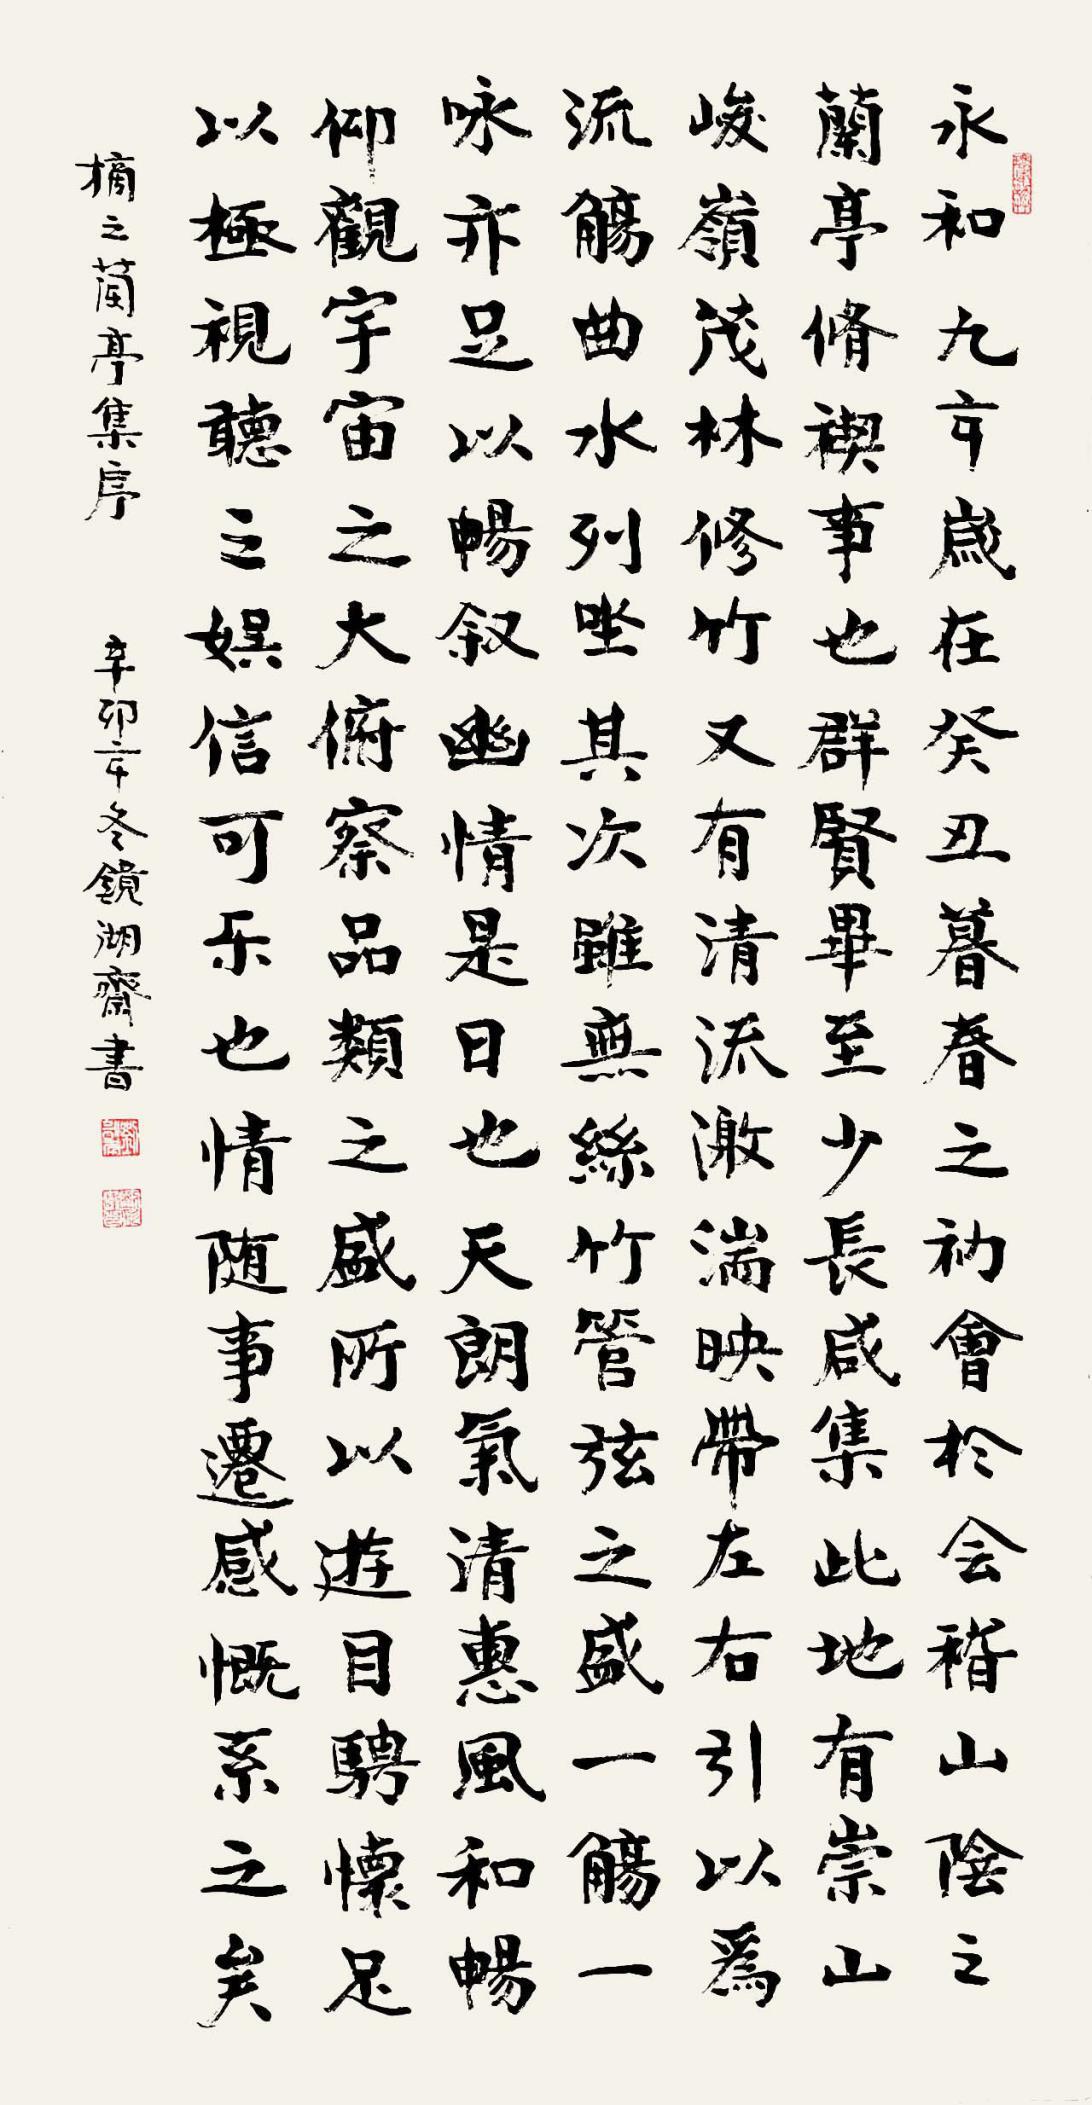 永和九年歲在癸丑暮春之初會於会稽山陰之
蘭亭脩禊事也群賢畢至少長咸集此地有崇山
峻嶺茂林修竹又有清流激湍映帶左右引以爲
流觴曲水列坐其次雖無絲竹管弦之盛一觴一
咏亦足以暢叙幽情是日也天朗氣清惠風和暢
仰觀宇宙之大俯察品類之盛所以遊目騁懷足
以極視聽之娱信可乐也情随事遷感慨系之矣
摘之蘭亭集序 辛卯年冬鏡湖齋書